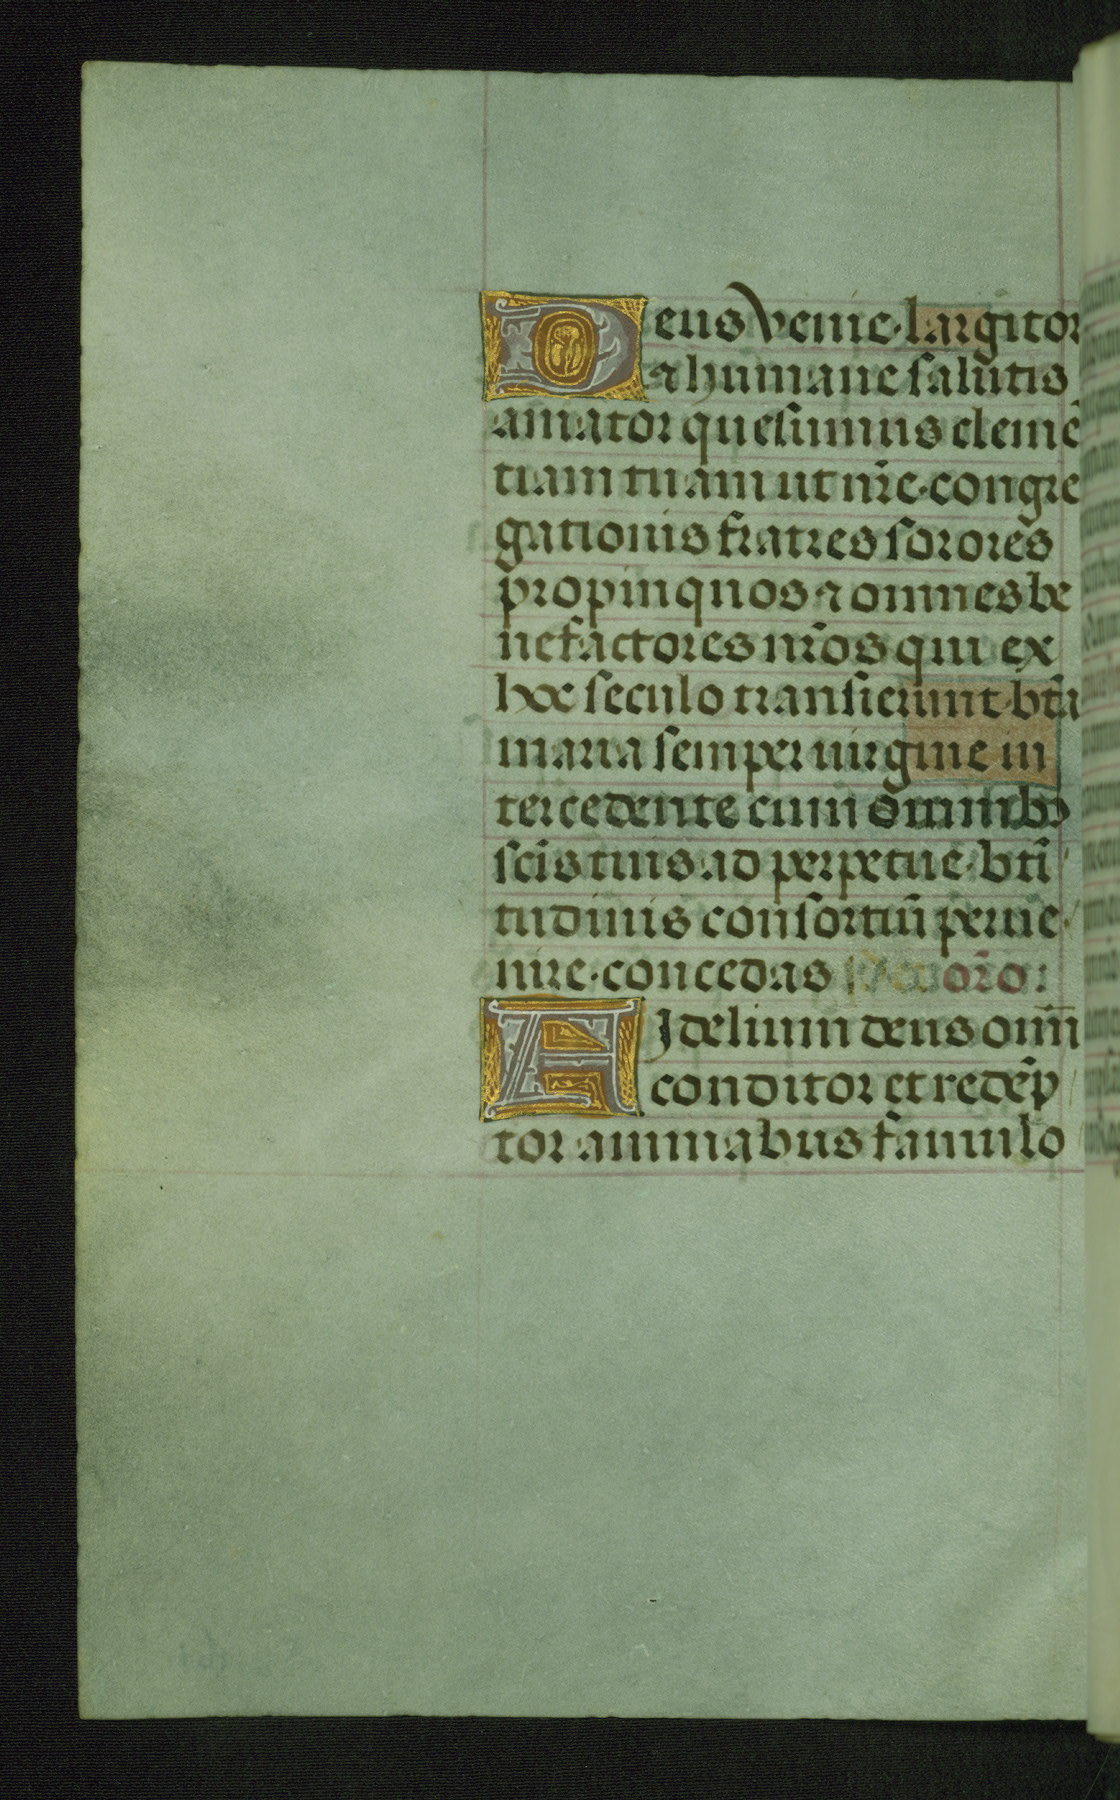 Deus venie largitor
⁊ humane salutis
amator quesumus clemē
tiam tuam ut nr̄e congre
gationis fratres sorores
propinquos ⁊ omnes be
nefactores nr̄os qui ex
hoc seculo transierunt bt̄a
maria semper uirgine in
tercedente cum omnibꝫ
sc̄is tuis ad perpetue bt̄i
tudinis consortiū perue
nire concedas or̄o:
Fidelium deus om̄
conditor et redēp
tor animabus famulo